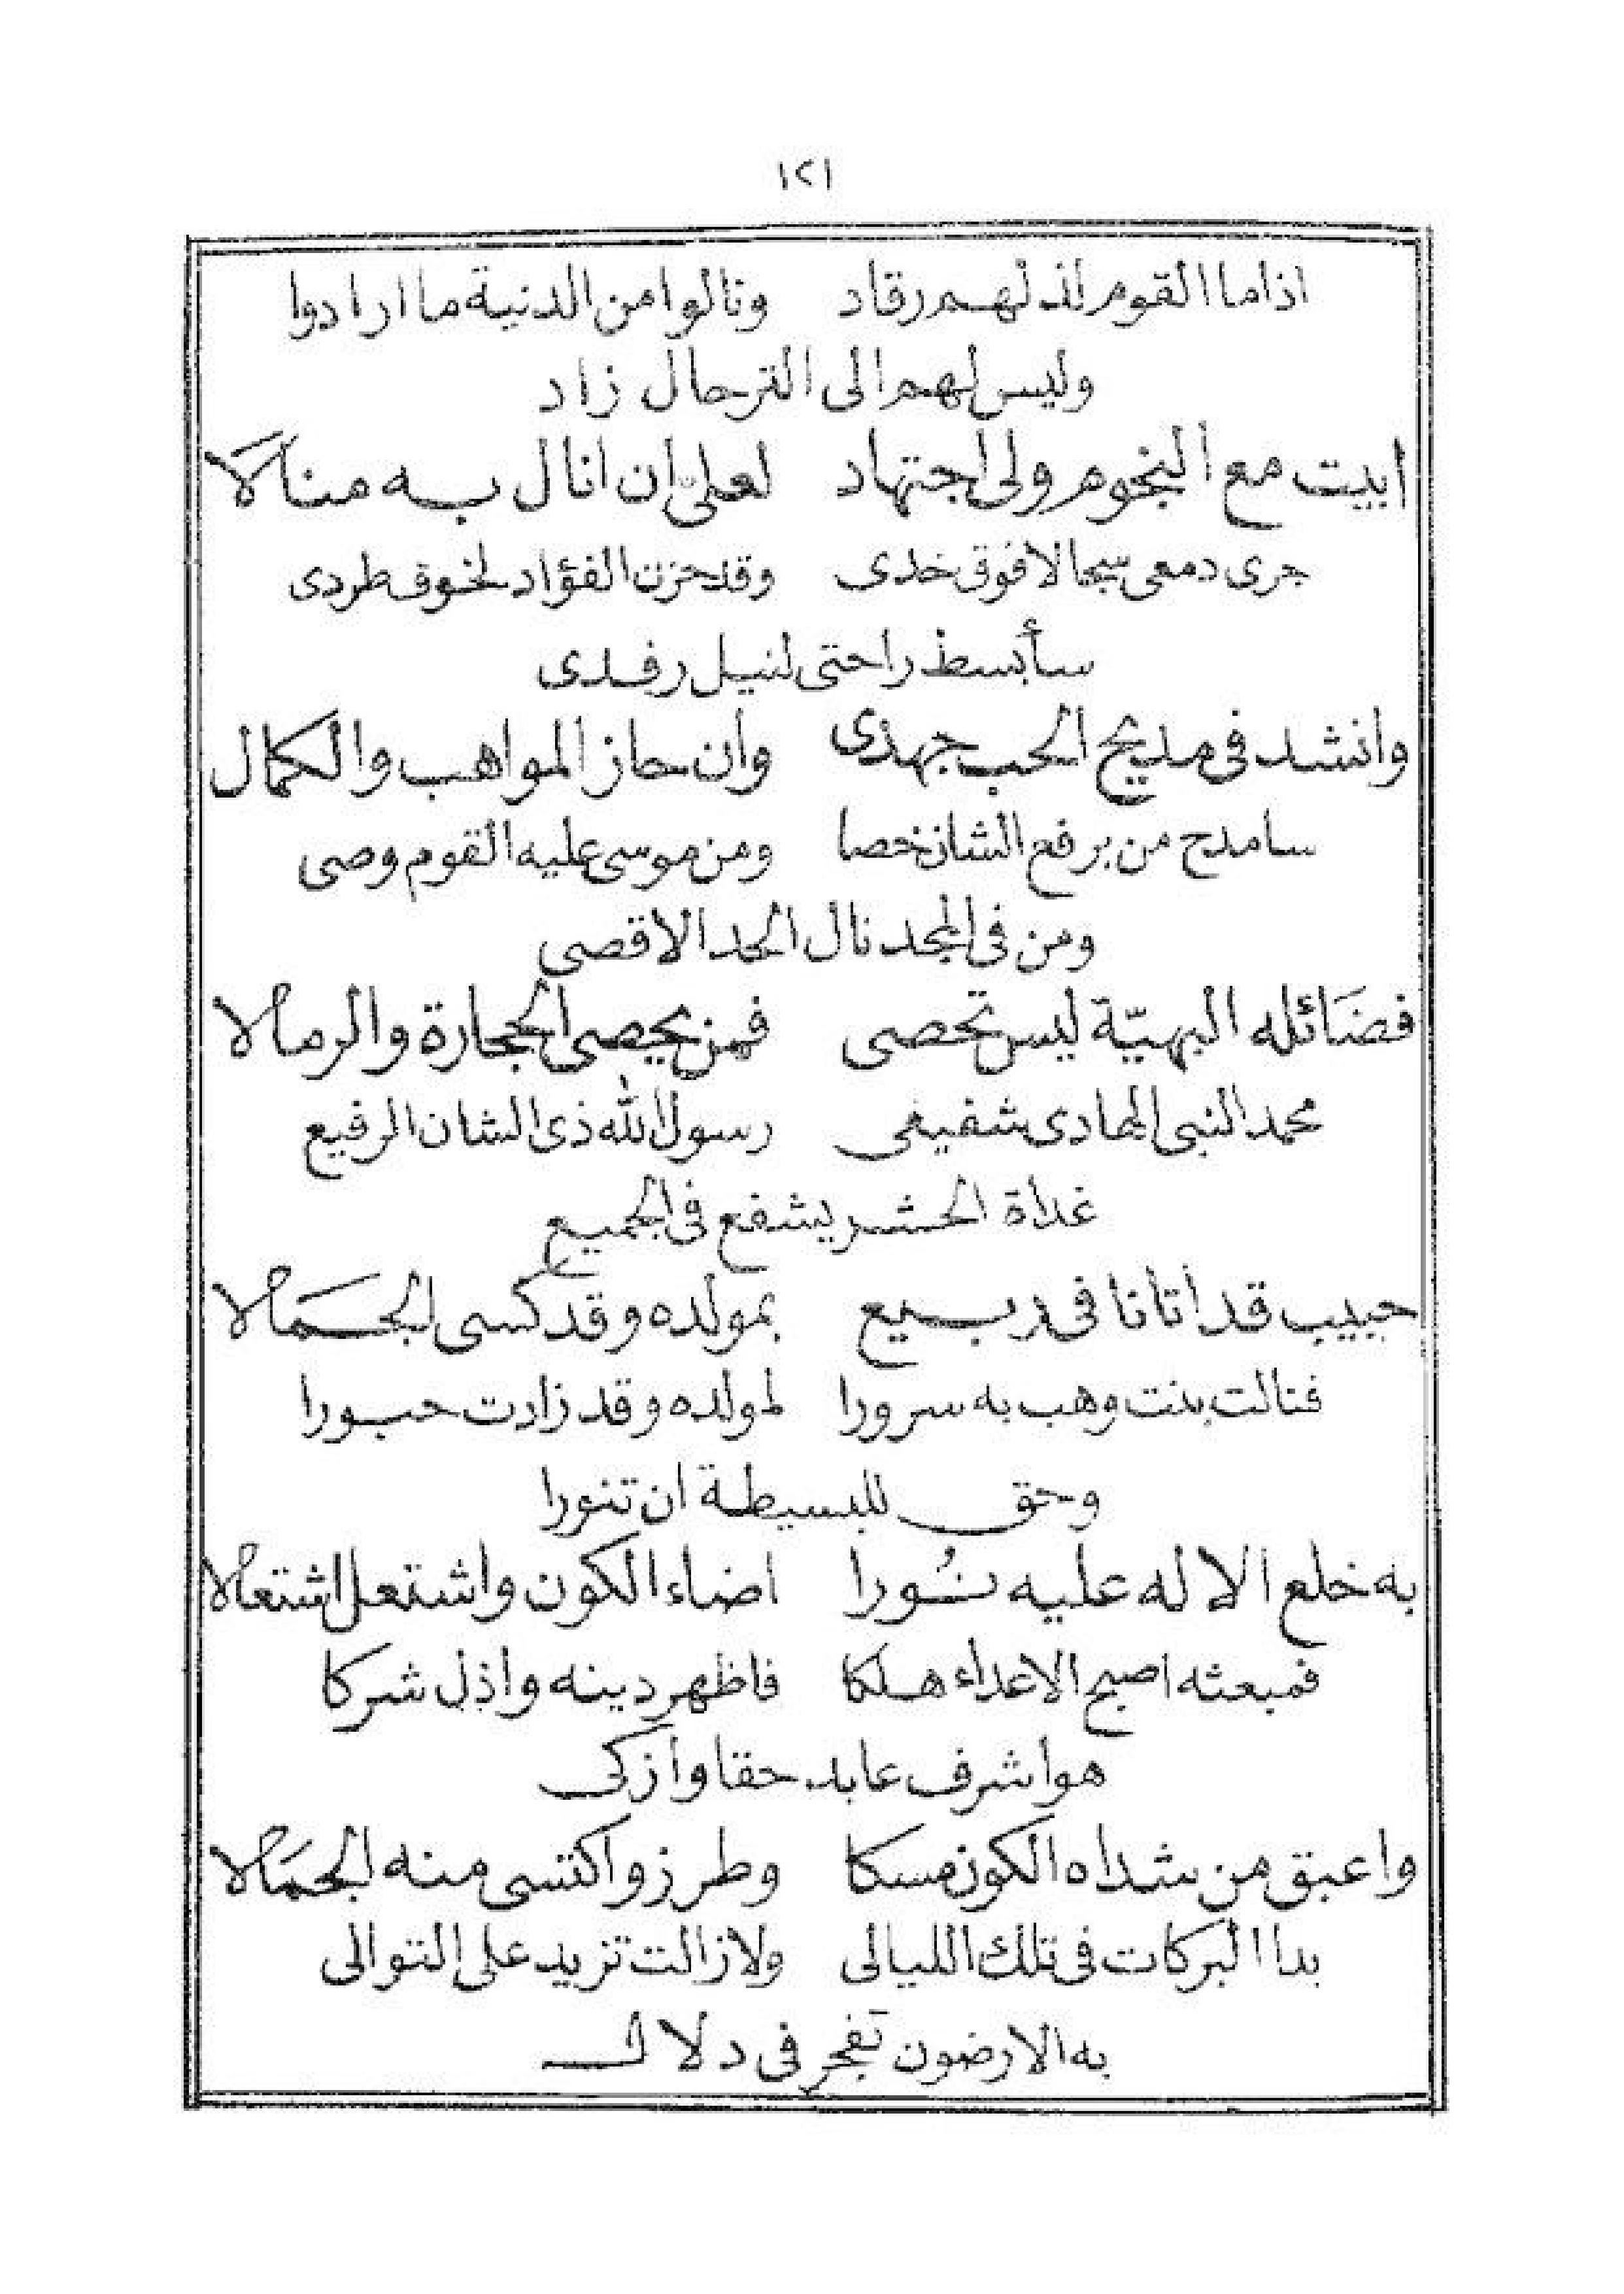 ١٢١
اذاما القوم لذ لهم رقاد ونالوا من الدنية ما ارادوا
وليس لهم الى الترحال زاد
ابيت مع النجوم ولى اجتهاد لعلى ان انال به منالا
جرى دمعى سجالا فوق خدى وقد حزن الفؤاد لخوف طردى
سأبسط راحتى لنيل رفدى
وانشد فى مديح الحب جهدى وان حاز المواهب والكمال
سامدح من برفع الشان خصا ومن موسى عليه القوم وصى
ومن فى المجد نال الحد الاقصى
فضَائله البهيّة ليس تحصى فمن يحصى الحجارة والرمالا
محمد النبى الهادى شفيعى رسول الله ذى الشان الرفيع
غداة الحشر يشفع فى الجميع
حبيب قد أتانا فى ربيع بمولده وقد كسى الجمَالا
فنالت بنت وهب به سرورا لمولده وقد زادت حبورا
وحق للبسيطة ان تنورا
به خلع الاله عليه نُورا اضاء الكون واشتعل اشتعالا
فمبعثه اصبح الاعداء هلكا فاظهر دينه واذل شركا
هو أشرف عابد حقا وأزكى
واعبق من شداه الكون مسكا وطرز واكتسى منه الجمَالا
بدا البركات فى تلك الليالى ولازالت تزيد على التوالى
به الارضون تفجر فى دلال